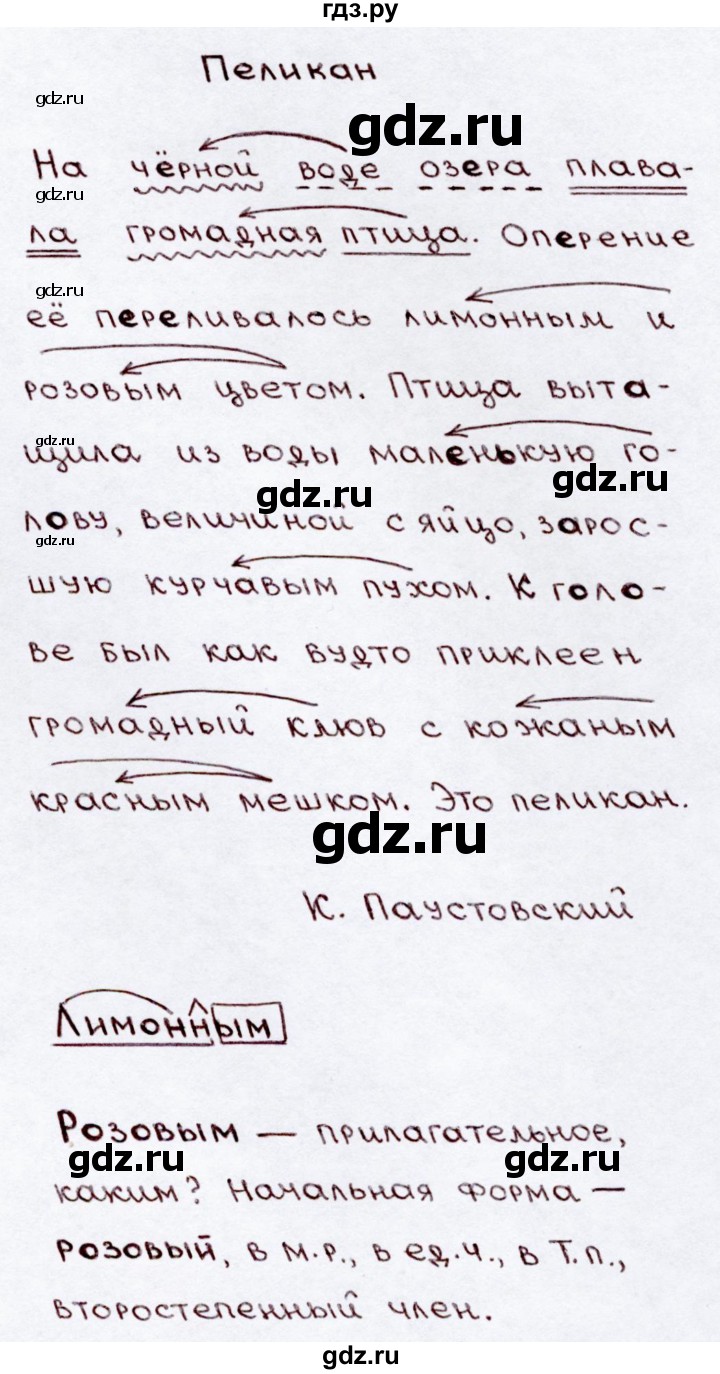 гдз.ру
Пеликан
gdz.ru
gdz.ru
На чёрной воде озера плава-
gdz.ru
ла громадная птица. Оперение
gdz.ru
её переливалось лимонным и
розовым цветом. Птица выта-
gdz.ru
щила из воды маленькую го-
gdz.ru
gdz.ru
лову, величиной с яйцо, зарос-
gdz.ru
шую курчавым пухом. К голо-
ве был как будто приклеен
громадный клюв с кожаным
красным мешком. Это пеликан.
gdz.ru
К. Паустовский
Лимонным
Розовым — прилагательное,
gdz.ru
gdz.ru
каким? Начальная форма —
розовый, в м.р., в ед.ч., в Т.п.,
второстепенный член.
gdz.ru